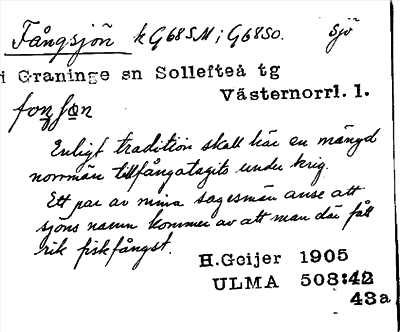 Fångsjön k G68SM; G68SO. Sjö
i Graninge sn Sollefteå tg
Västernorrl. l.
Enligt tradition skall här en mängd
norrmän tillfångatagits under krig.
Ett par av mina sagesmän anse att
sjöns namn kommer av att man där fått
rik fiskfångst.
H.Geijer 1905
ULMA 508:42
43a